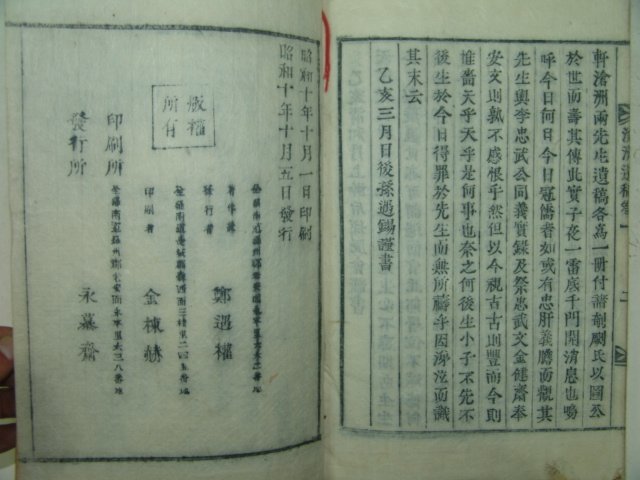 軒滄洲兩先生遺稿各爲一冊付諸剞劂氏以圖公
於世而壽其傳此實子夜一雷底千門開消息也嗚
呼今日何日今日冠儒者如或有忠肝義膽而觀其
先生與李忠武公同義實錄及祭忠武文金健齋奉
安文則孰不感恨乎然但以今視古古則豐而今則
嗇天乎天乎是何事也奈之何後生小子不先不
後生於今日得罪於先生而無所禱乎因滂泣而識
其末云
乙亥三月日後孫遇錫謹書
遺稿
二
昭和十年十月一日印刷
昭和十年十月五日發行
版權所有
著作兼
發行者
鄭遇權
印刷者
金棟赫
印刷所
發行所
永慕齋